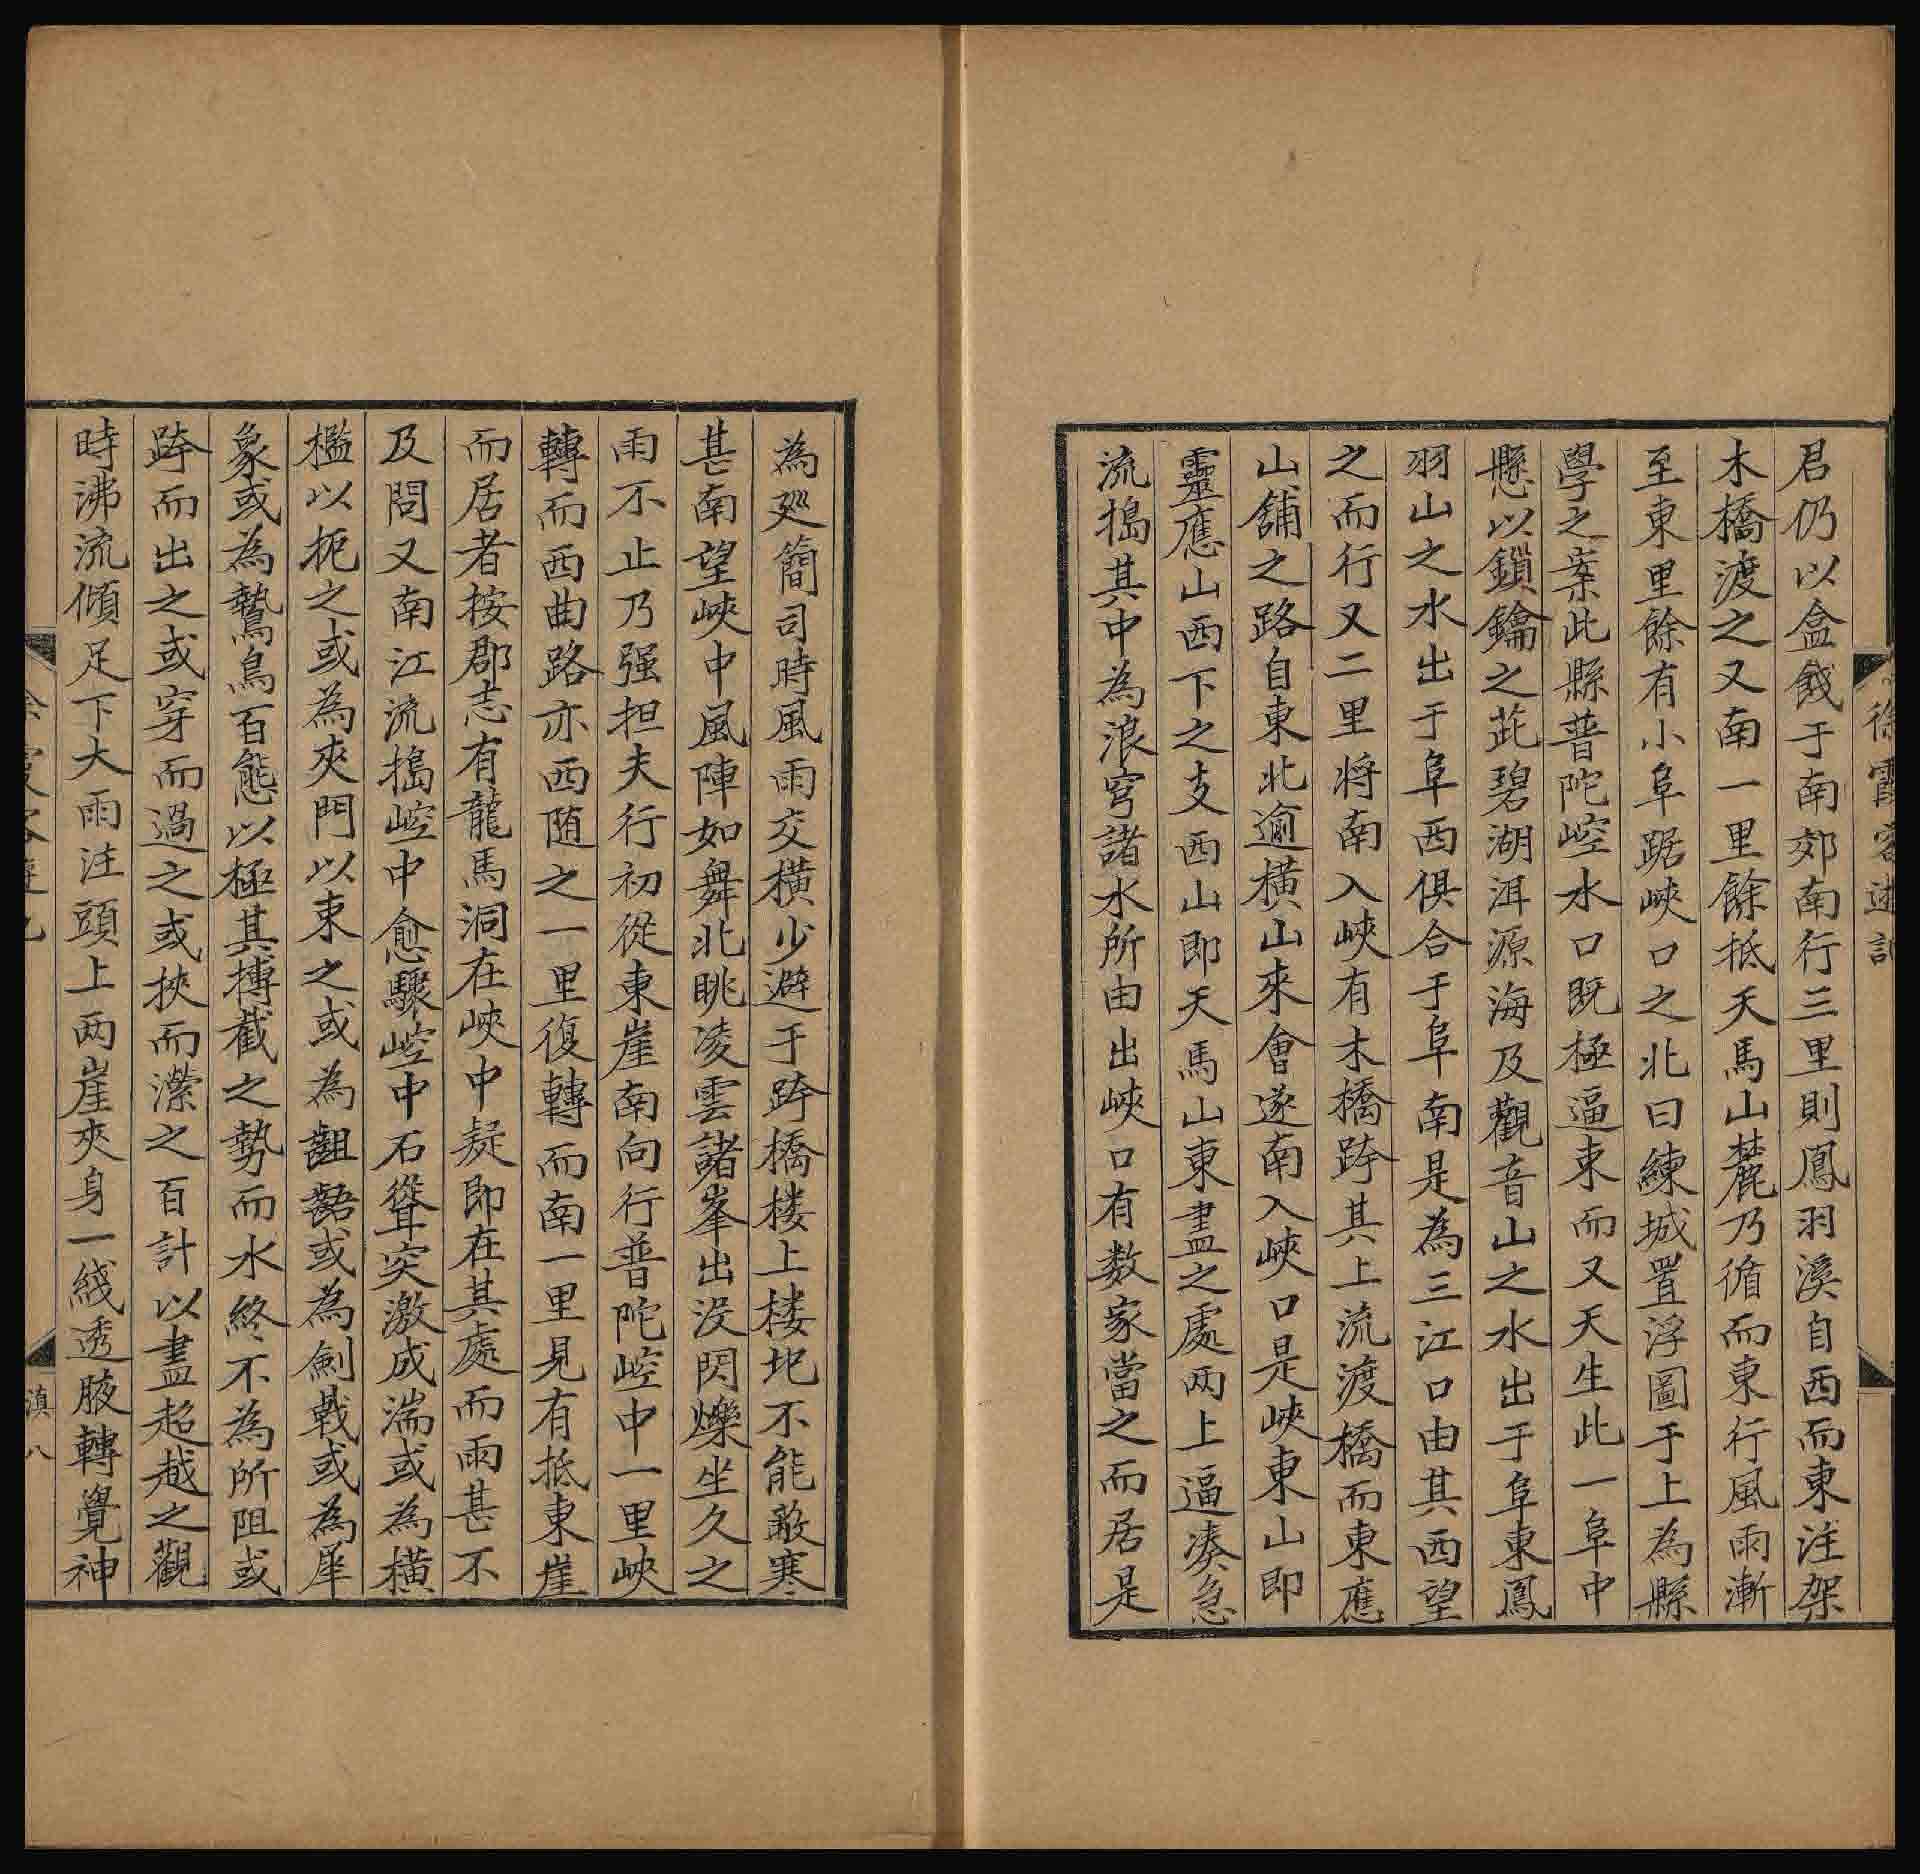 徐霞客遊記
君仍以盒餞于南郊南行三里則鳳羽溪自西而東注架
木橋渡之又南一里餘抵天馬山麓乃循而東行風雨漸
至東里餘有小阜踞峽口之北曰練城置浮圖于上為縣
學之案此縣普陀崆水口既極逼束而又天生此一阜中
懸以鎖鑰之茈碧湖洱源海及觀音山之水出于阜東鳳
羽山之水出于阜西俱合于阜南是為三江口由其西望
之而行又二里將南入峽有木橋跨其上流渡橋而東應
山舖之路自東北逾橫山來會遂南入峽口是峽東山即
靈應山西下之支西山即天馬山東盡之處两上逼湊急
流搗其中為浪穹諸水所由出峽口有数家當之而居是
為廵簡司時風雨交橫少避于跨橋楼上楼圮不能敵寒
甚南望峽中風陣如舞北眺凌雲諸峯出没閃爍坐久之
雨不止乃强担夫行初從東崖南向行普陀崆中一里峽
轉而西曲路亦西随之一里復轉而南一里見有抵東崖
而居者按郡志有龍馬洞在峽中疑即在其處而雨甚不
及問又南江流搗崆中愈驟崆中石聳突激成湍或為橫
檻以扼之或為夾門以束之或為齟齬或為劍戟或為犀
象或為鷙鳥百態以極其搏截之勢而水終不為所阻或
跨而出之或穿而過之或挾而瀠之百計以盡超越之觀
時沸流傾足下大雨注頭上两崖夾身一綫透腋轉覺神
滇八